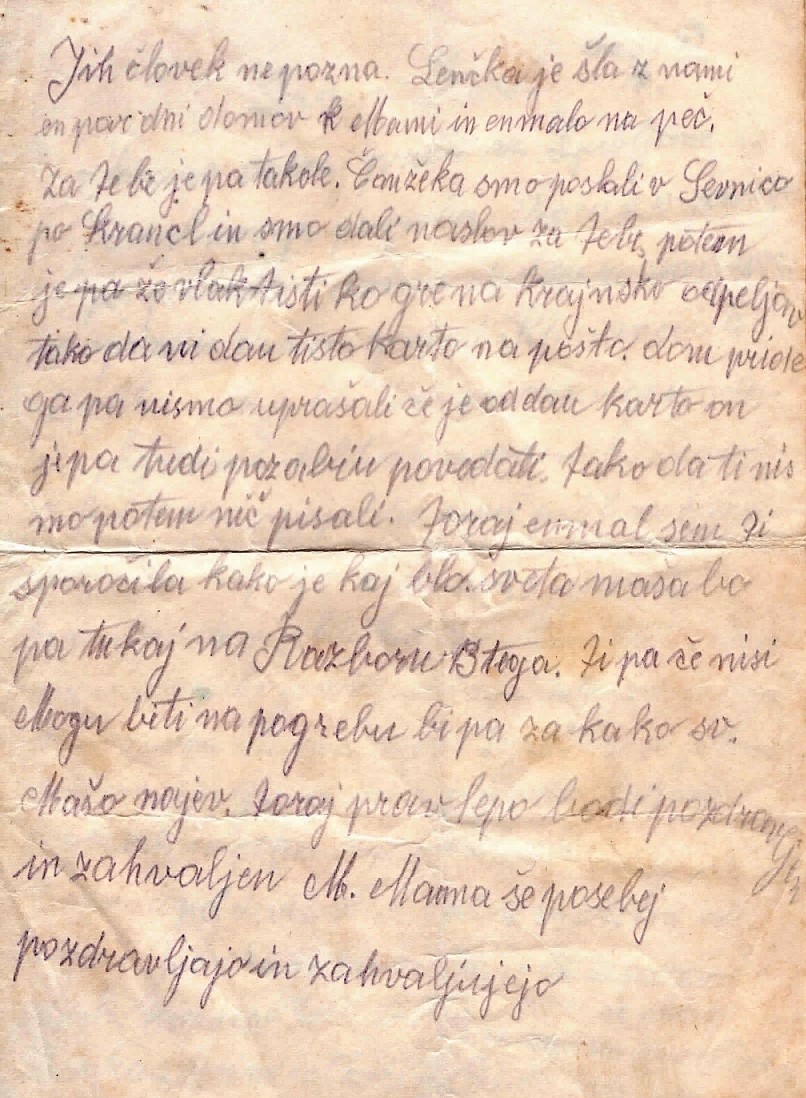 Jih človek ne pozna. Lenčka je šla z nami
en par dni domov k Mami in enmalo na peč.
Za tebe je pa takole. Čoužeka smo poslali v Sevnico
po krancl in smo dali naslov za tebe, potem
je pa že vlak tisti ko gre na krajnsko odpeljav
tako da ni dau tisto karto na pošto. dom pride
ga pa nismo uprašali če je oddau karto on
je pa tudi pozabiu povedati. Tako da ti nis
mo potem nič pisali. Toraj enmal sem ti
sporočila kako je kaj blo. sveta maša bo
pa tukaj na Razboru 8tega. Ti pa če nisi
Mogu biti na pogrebu bi pa za kako sv.
Mašo najev. Toraj prav lepo bodi pozdravlj
in zahvaljen M. Mama še posebej
pozdravljajo in zahvaljujejo